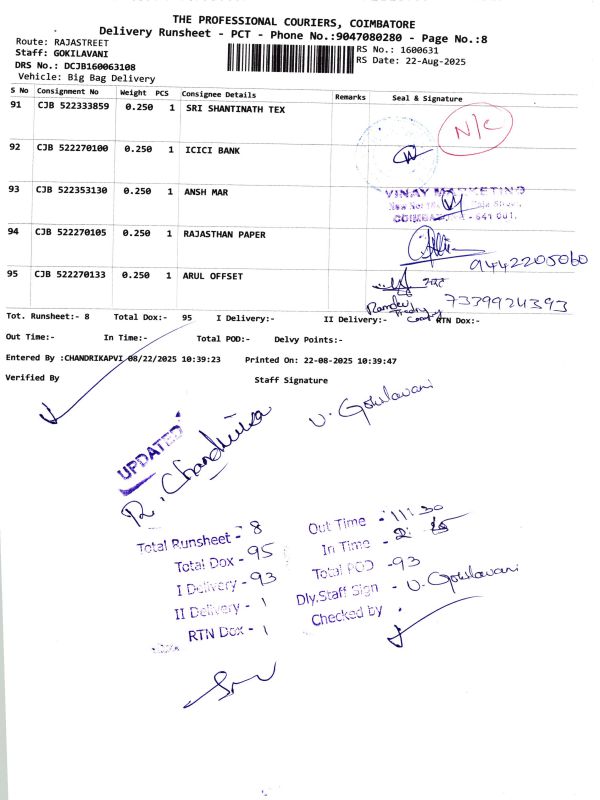 THE PROFESSIONAL COURIERS, COIMBATORE
Delivery Runsheet - PCT - Phone No.:9047080280 - Page No.:8
Route: RAJASTREET
Staff: GOKILAVANI
DRS No.: DCJB160063108
Vehicle: Big Bag Delivery
RS No.: 1600631
RS Date: 22-Aug-2025
S No Consignment No Weight PCS Consignee Details Remarks Seal & Signature
91 CJB 522333859 0.250 1 SRI SHANTINATH TEX N/C
92 CJB 522270100 0.250 1 ICICI BANK
93 CJB 522353130 0.250 1 ANSH MAR VINAY MARKETING
COIMBATORE - 641 001.
94 CJB 522270105 0.250 1 RAJASTHAN PAPER 9442205060
95 CJB 522270133 0.250 1 ARUL OFFSET
7339924393
Tot. Runsheet:- 8 Total Dox:- 95 I Delivery:- II Delivery:- RTN Dox:-
Out Time:- In Time:- Total POD:- Delvy Points:-
Entered By :CHANDRIKAPVI 08/22/2025 10:39:23 Printed On: 22-08-2025 10:39:47
Verified By Staff Signature
V. Gokilavani
UPDATED
R. Chandrika
Total Runsheet - 8
Total Dox - 95
I Delivery - 93
II Delivery - 1
RTN Dox - 1
Out Time - 11:30
In Time - 2
Total POD - 93
Dly.Staff Sign - V. Gokilavani
Checked by